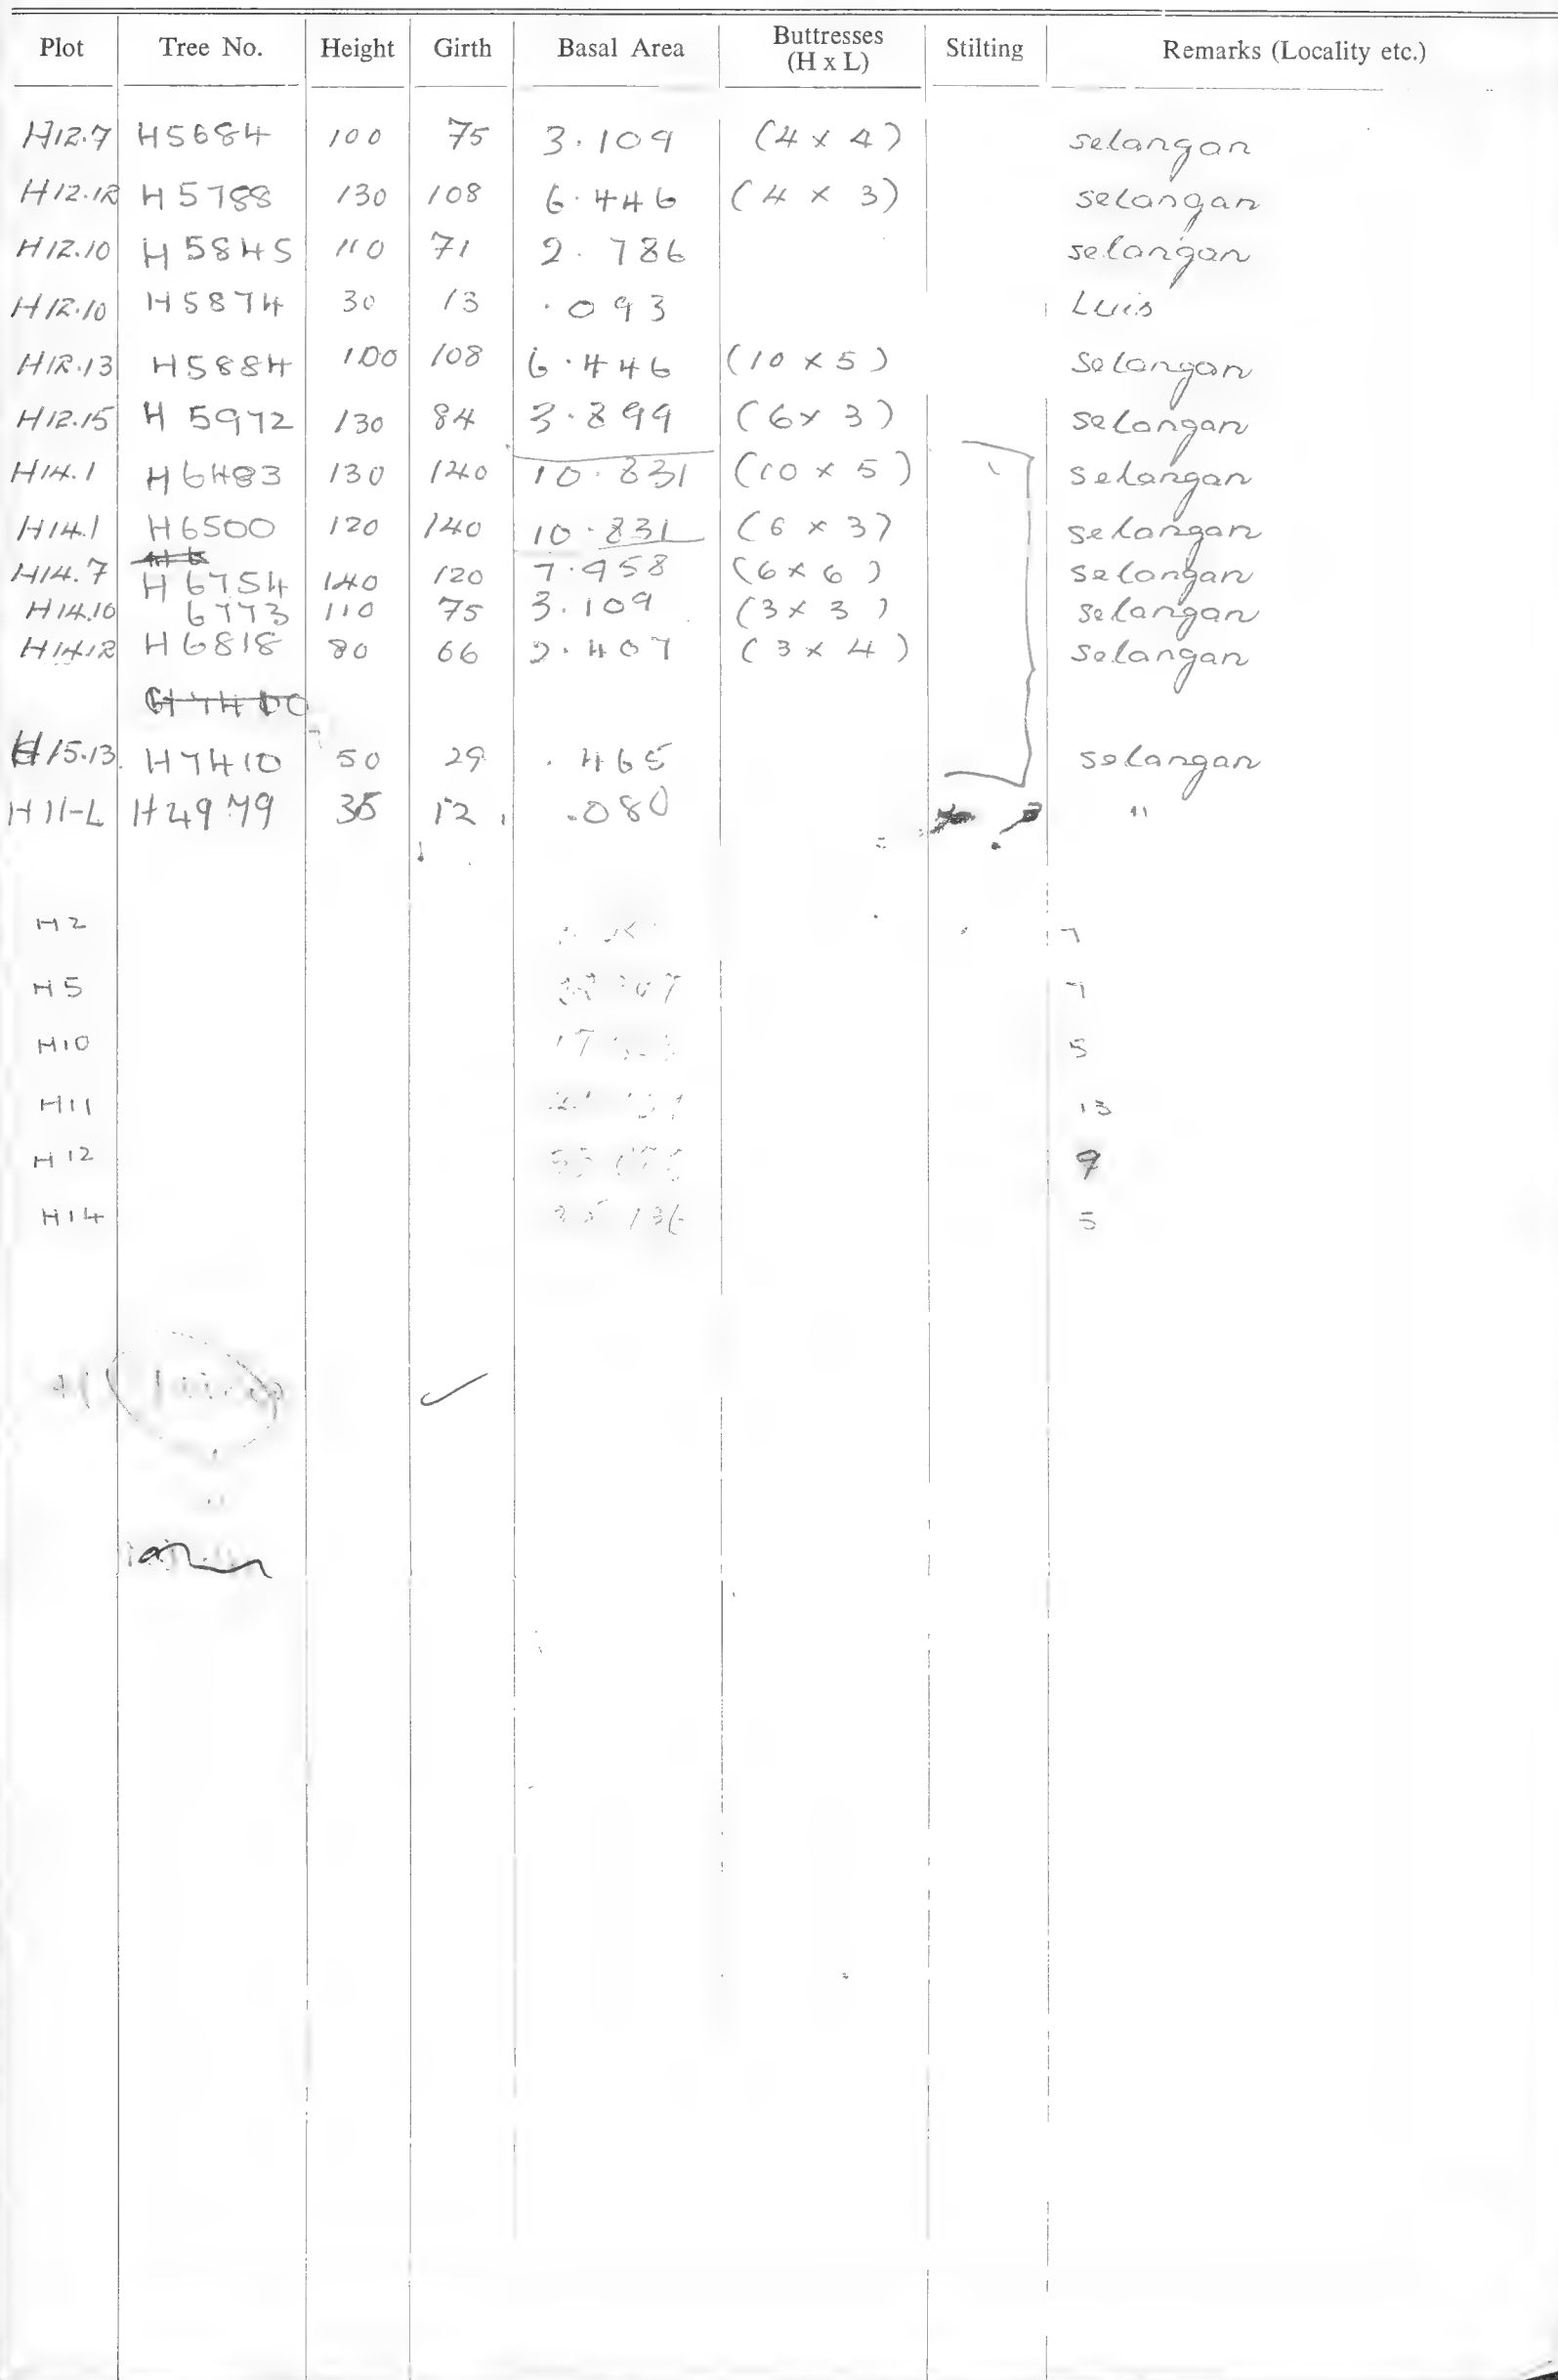 Plot Tree No. Height Girth Basal Area Buttresses (H x L) Stilting Remarks (Locality etc.)
H12.7 H5684 100 75 3.109 (4 x 4) selangan
H12.12 H5788 130 108 6.446 (4 x 3) selangan
H12.10 H5845 110 71 2.786 selangan
H12.10 H5874 30 13 .093 Luis
H12.13 H5884 100 108 6.446 (10 x 5) selangan
H12.15 H5972 130 84 3.899 (6 x 3) selangan
H14.1 H6483 130 140 10.831 (10 x 5) selangan
H14.1 H6500 120 140 10.831 (6 x 3) selangan
H14.7 H6754 140 120 7.958 (6 x 6) selangan
H14.10 6773 110 75 3.109 (3 x 3) selangan
H14.12 H6818 80 66 2.407 (3 x 4) selangan
H15.13 H7410 50 29 .465 selangan
H11-L H4979 35 12 .080 "
H2 7
H5 7
H10 5
H11 13
H12 9
H14 5